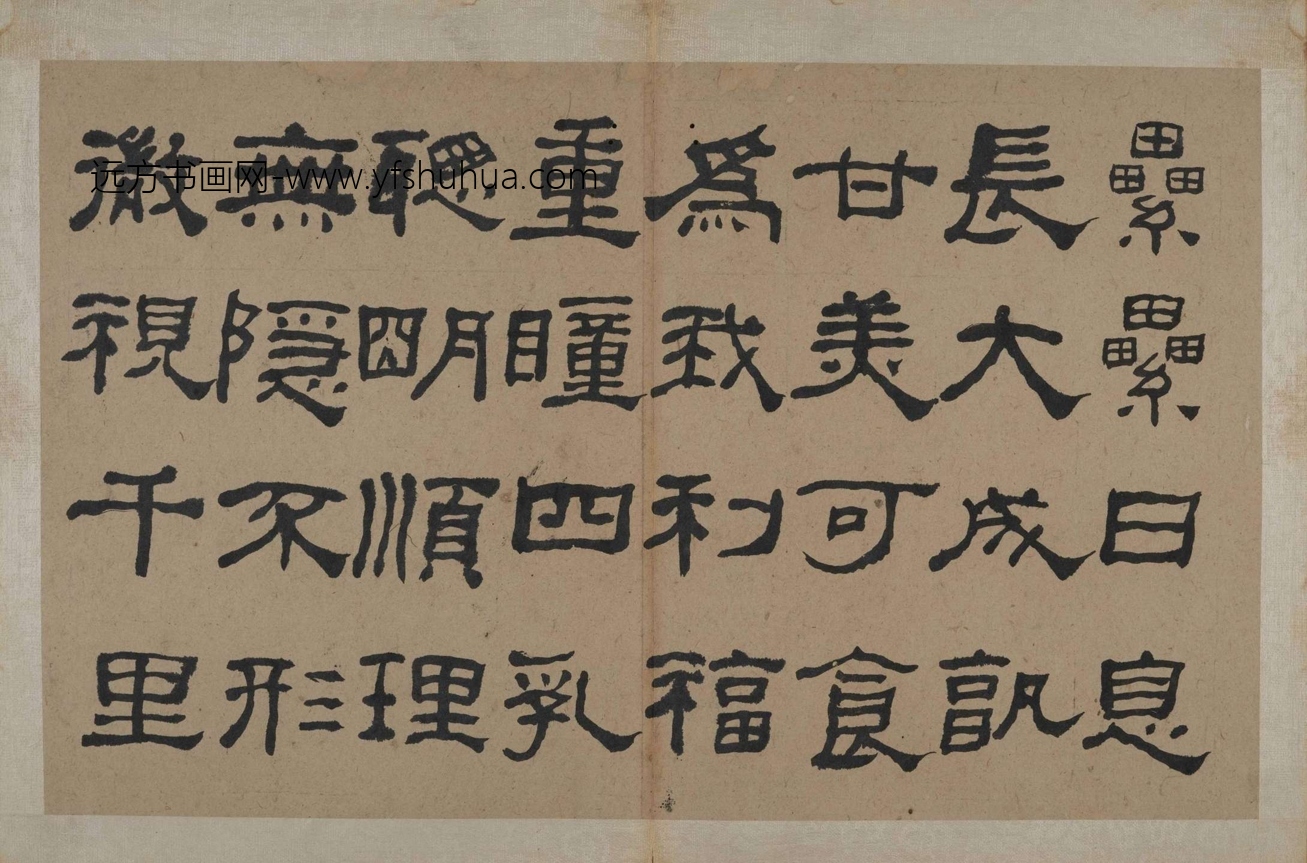 纍纍日息
長大成孰
甘美可食
爲我利福
重瞳四乳
聰明順理
無隱不形
微視千里
远方书画网-www.yfshuhua.com